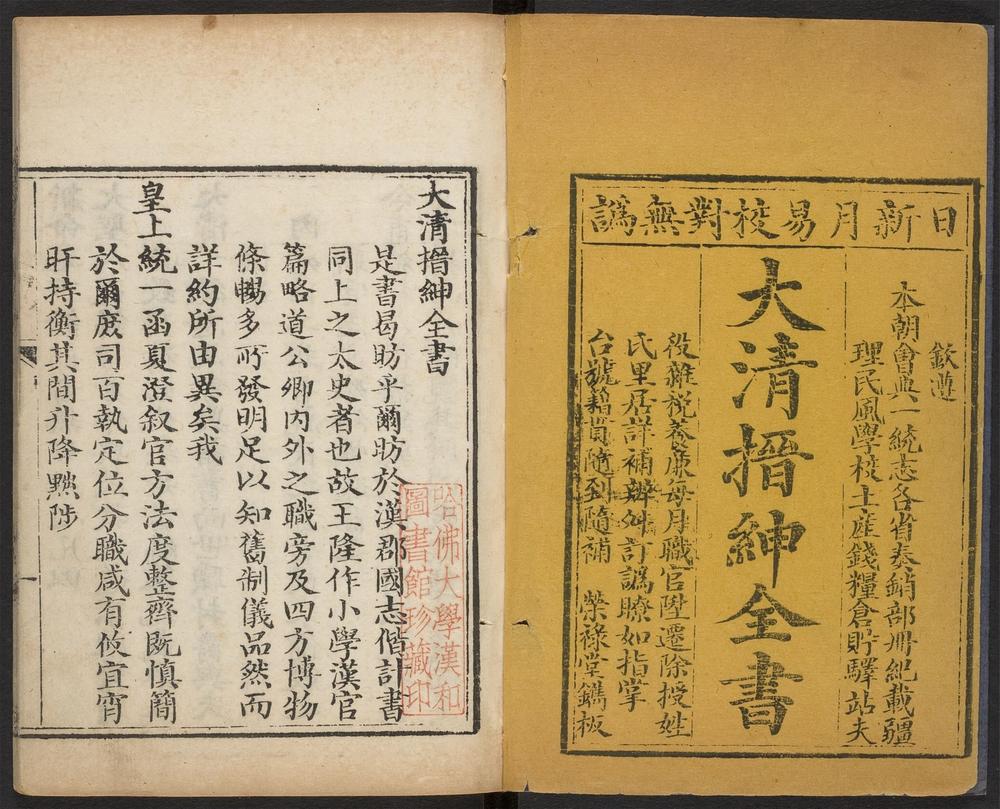 日新月易校對無譌
欽遵
本朝會典一統志各省奏銷部冊紀載疆
理民風學校土產錢糧倉貯驛站夫
大清搢紳全書
役雜稅養廉每月職官陞遷除授姓
氏里居詳補辦舛訂譌瞭如指掌
台號籍貫隨到隨補 榮祿堂鐫板
大清搢紳全書
是書曷昉乎爾昉於漢郡國志偕計書
同上之太史者也故王隆作小學漢官
篇略道公卿內外之職旁及四方博物
條暢多所發明足以知舊制儀品然而
詳約所由異矣我
皇上統一函夏澄叙官方法度整齊既慎簡
於爾庶司百執定位分職咸有攸宜宵
旰持衡其間升降黜陟
哈佛大學漢和
圖書館珍藏印